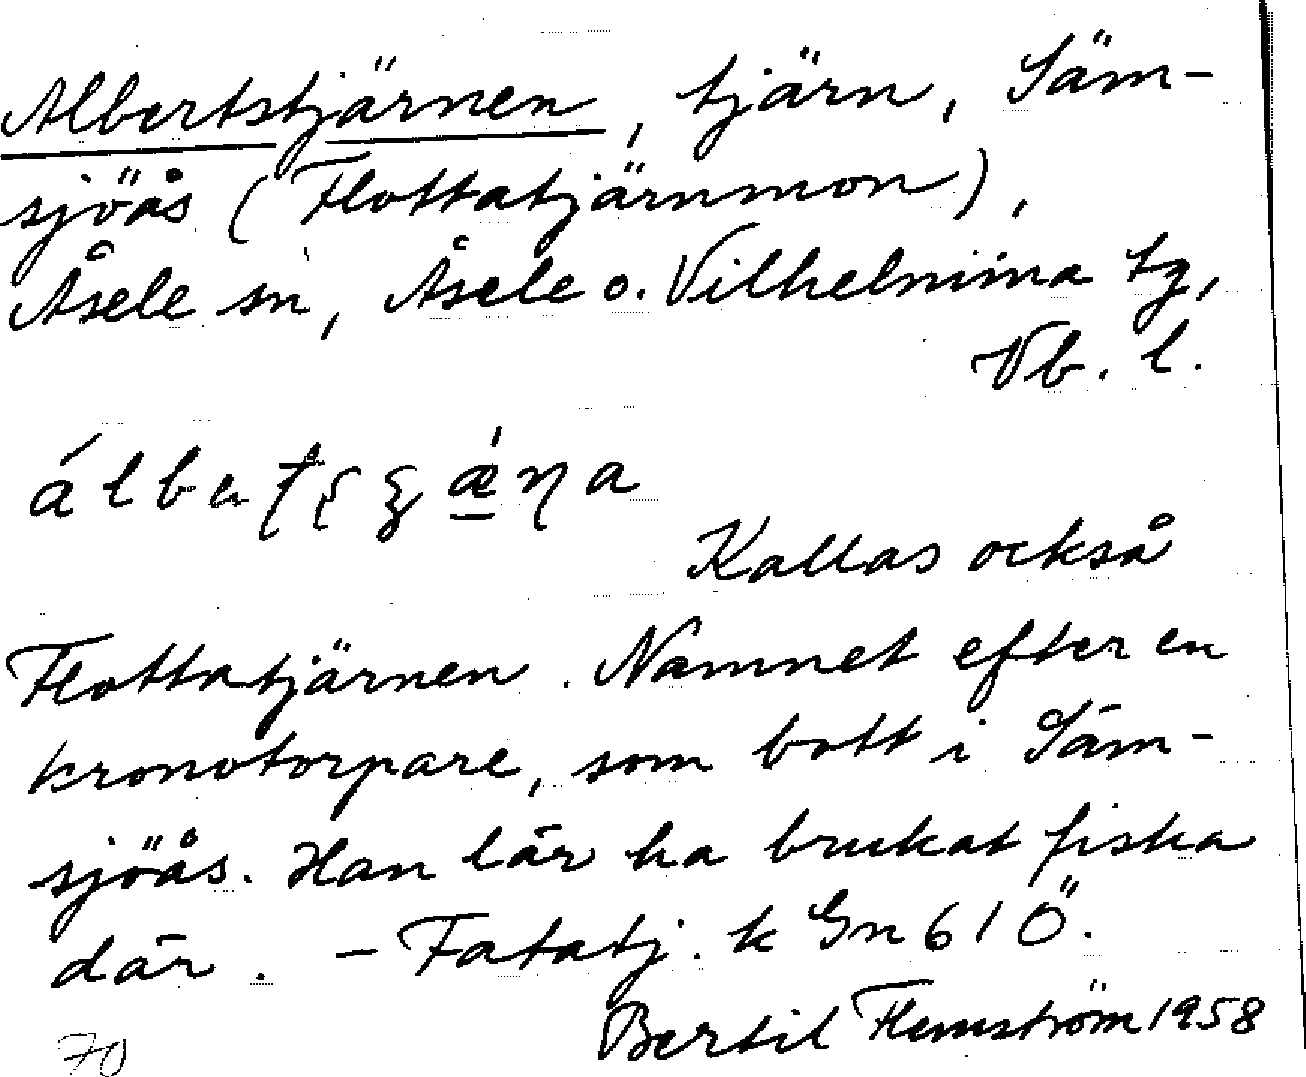 Albertstjärnen, tjärn, Säm-
sjöås (Flottatjärnmon),
Åsele sn, Åsele o. Vilhelmina tg,
Vb. l.
Kallas också
Flottatjärnen. Namnet efter en
kronotorpare, som bott i Säm-
sjöås. Han lär ha brukat fiska
där. - Fatatj. k Gn 61 Ö.
Bertil Flemström 1958
70